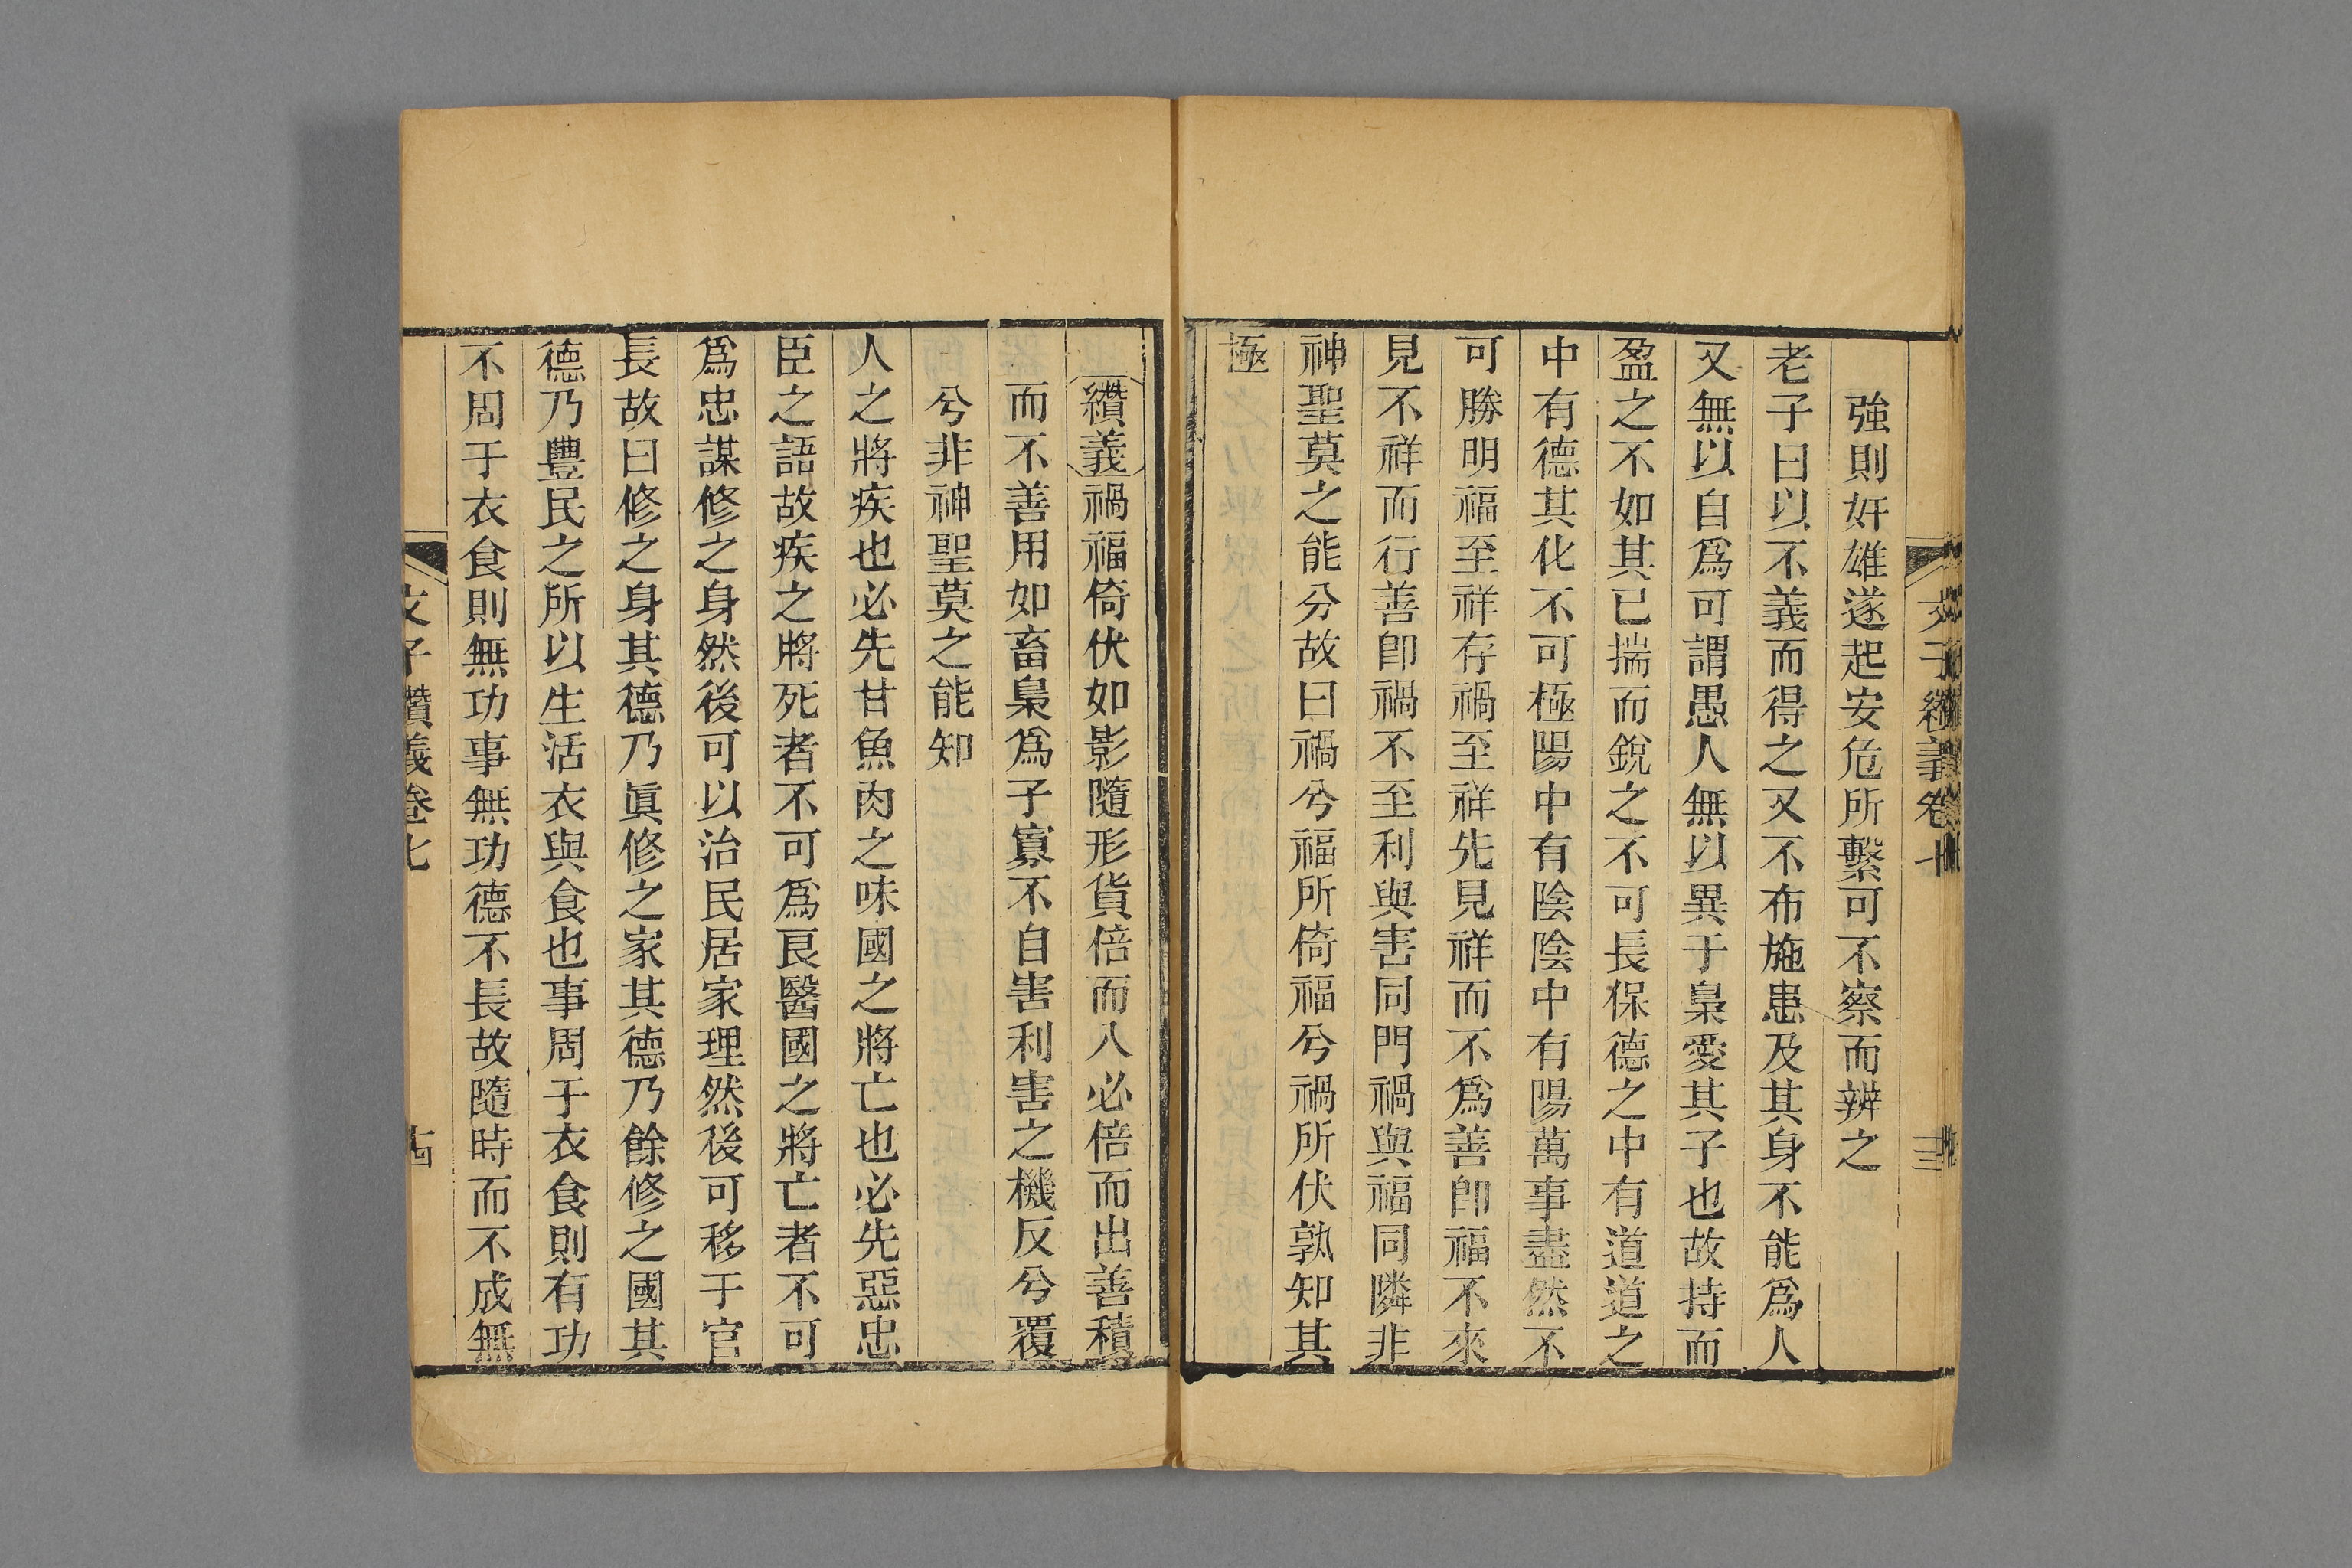 強則奸雄遂起安危所繫可不察而辨之
老子曰以不義而得之又不布施患及其身不能爲人
又無以自爲可謂愚人無以異于梟愛其子也故持而
盈之不如其已揣而銳之不可長保德之中有道道之
中有德其化不可極陽中有陰陰中有陽萬事盡然不
可勝明福至祥存禍至祥先見祥而不爲善卽福不來
見不祥而行善卽禍不至利與害同門禍與福同隣非
神聖莫之能分故曰禍兮福所倚福兮禍所伏孰知其
極
纘義禍福倚伏如影隨形貨倍而入必倍而出善積
而不善用如畜梟爲子寡不自害利害之機反兮覆
兮非神聖莫之能知
人之將疾也必先甘魚肉之味國之將亡也必先惡忠
臣之語故疾之將死者不可爲良醫國之將亡者不可
爲忠謀修之身然後可以治民居家理然後可移于官
長故曰修之身其德乃眞修之家其德乃餘修之國其
德乃豐民之所以生活衣與食也事周于衣食則有功
不周于衣食則無功事無功德不長故隨時而不成無
文子纘義卷七
十四